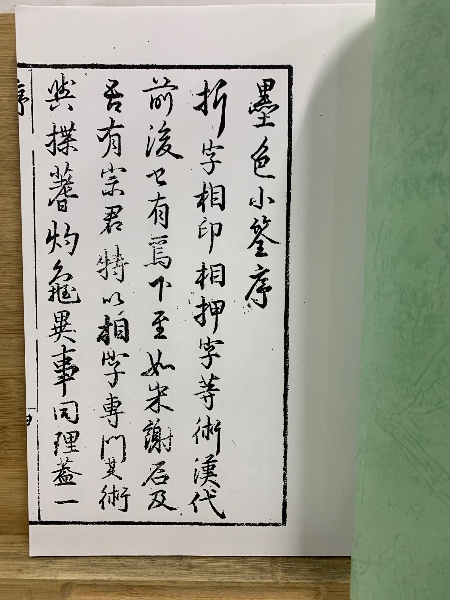 墨色小筌序
折字相印相押字等術漢代
前後已有焉下至如宋謝石及
吾有宗君特以相字專門其術
與揲蓍灼龜異事同理蓋一
序